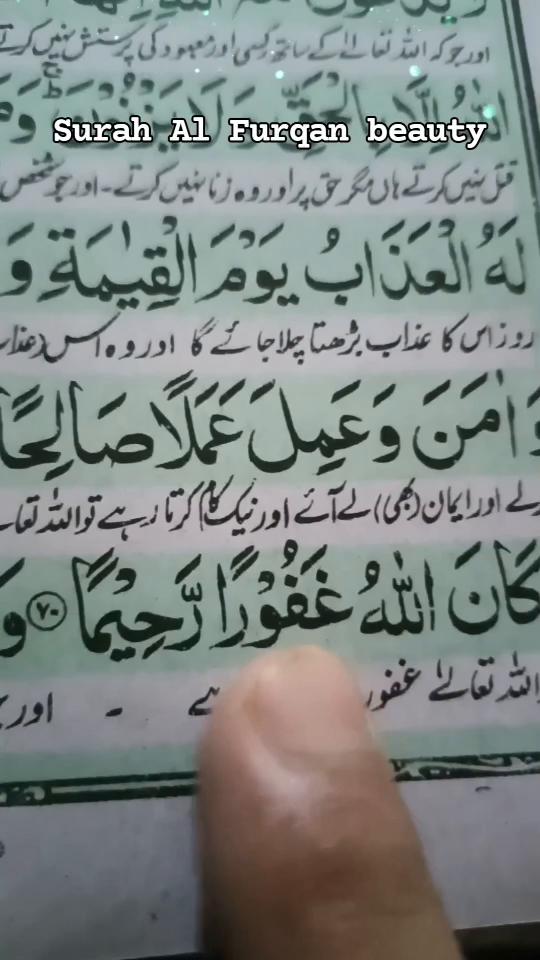 اور جو کہ اللہ تعالےٰ کے ساتھ کسی اور معبود کی پرستش نہیں کرتے
Surah Al Furqan beauty
قتل نہیں کرتے ہاں مگر حق پر اور وہ زنا نہیں کرتے۔ اور جو شخص
لَهُ الْعَذَابُ يَوْمَ الْقِيٰمَةِ وَ
روز اس کا عذاب بڑھتا چلا جائے گا اور وہ اس (عذاب
وَاٰمَنَ وَعَمِلَ عَمَلًا صَالِحًا
لے اور ایمان (بھی) لے آئے اور نیک کام کرتا رہے تو اللہ تعا
كَانَ اللّٰهُ غَفُوْرًا رَّحِيْمًا ۷۰ وَ
اللہ تعالےٰ غفور ہے - اور